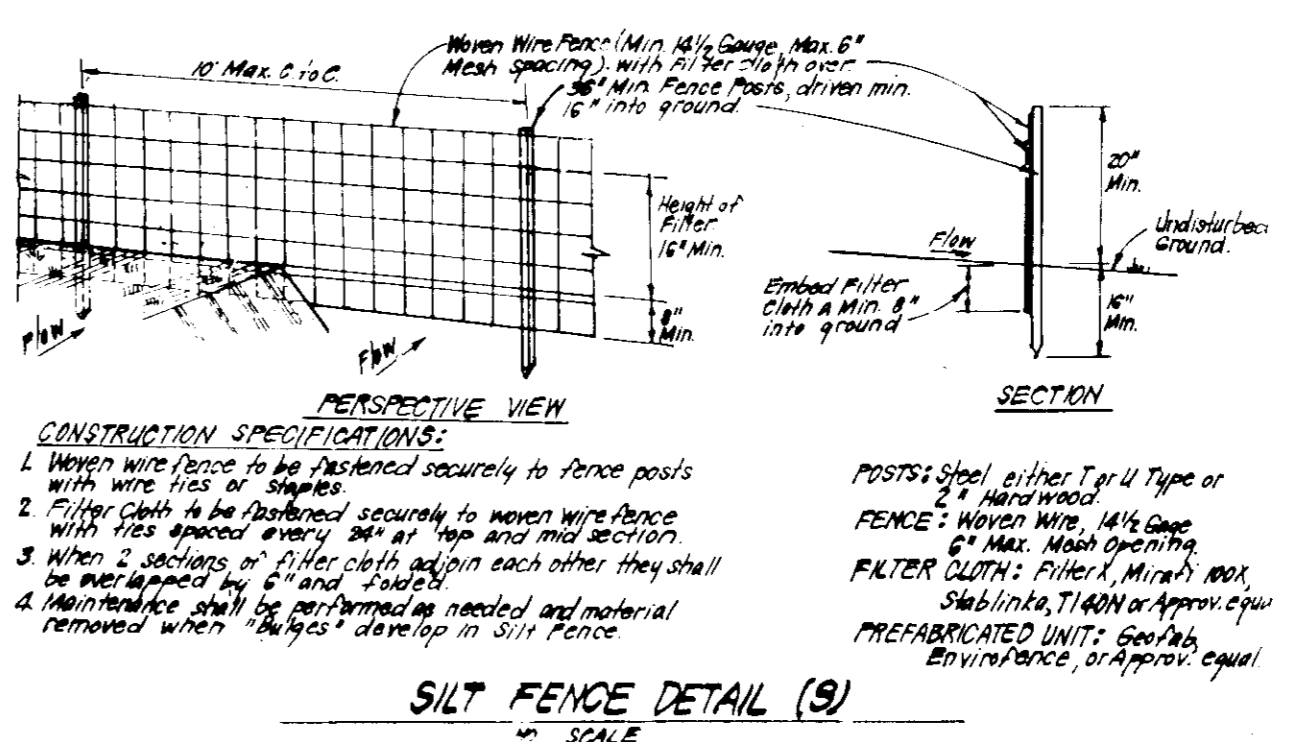 Woven Wire Fence (Min. 14½ Gauge, Max. 6"
Mesh Spacing). with Filter cloth over.
36" Min. Fence Posts, driven min.
16" into ground.
10' Max. C. to C.
Height of
Filter.
16" Min.
8"
Min.
Flow
Flow
PERSPECTIVE VIEW
20"
Min.
Undisturbed
Ground.
Flow
Embed Filter
Cloth A Min. 8"
into ground
16"
Min.
SECTION
CONSTRUCTION SPECIFICATIONS:
1. Woven wire fence to be fastened securely to fence posts
with wire ties or staples.
2. Filter Cloth to be fastened securely to woven wire fence
with ties spaced every 24" at top and mid section.
3. When 2 sections of filter cloth adjoin each other they shall
be overlapped by 6" and folded.
4. Maintenance shall be performed as needed and material
removed when "Bulges" develop in Silt Fence.
POSTS: Steel either T or U Type or
2" Hardwood.
FENCE: Woven Wire, 14½ Gage
6" Max. Mesh Opening.
FILTER CLOTH: Filter X, Mirafi 100X,
Stablinka, T140N or Approv. equ
PREFABRICATED UNIT: Geofab,
Envirofence, or Approv. equal.
SILT FENCE DETAIL (S)
NO SCALE